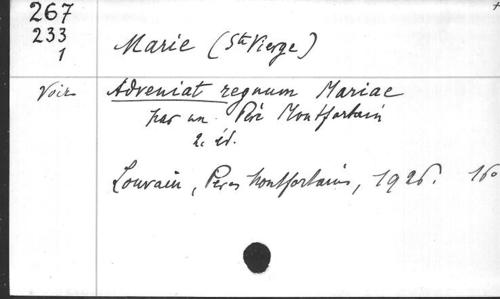 267
233
1
Marie (Ste Vierge)
Voir Adveniat regnum Mariae
par un Père Montfortain
2e éd.
Louvain, Pères Montfortains, 1926. 16o